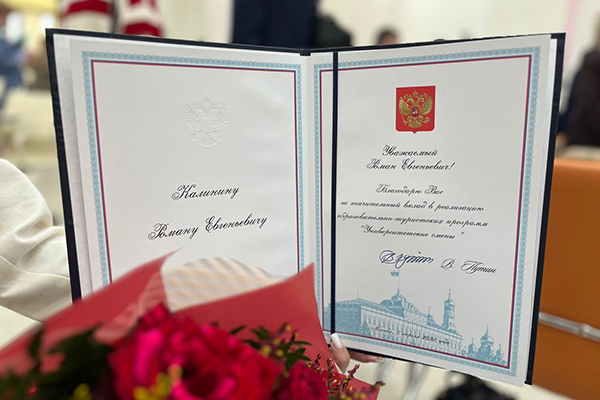 Калинину
Роману Евгеньевичу
Уважаемый
Роман Евгеньевич!
Благодарю Вас
за значительный вклад в реализацию
образовательно-туристских программ
"Университетские смены"
В. Путин